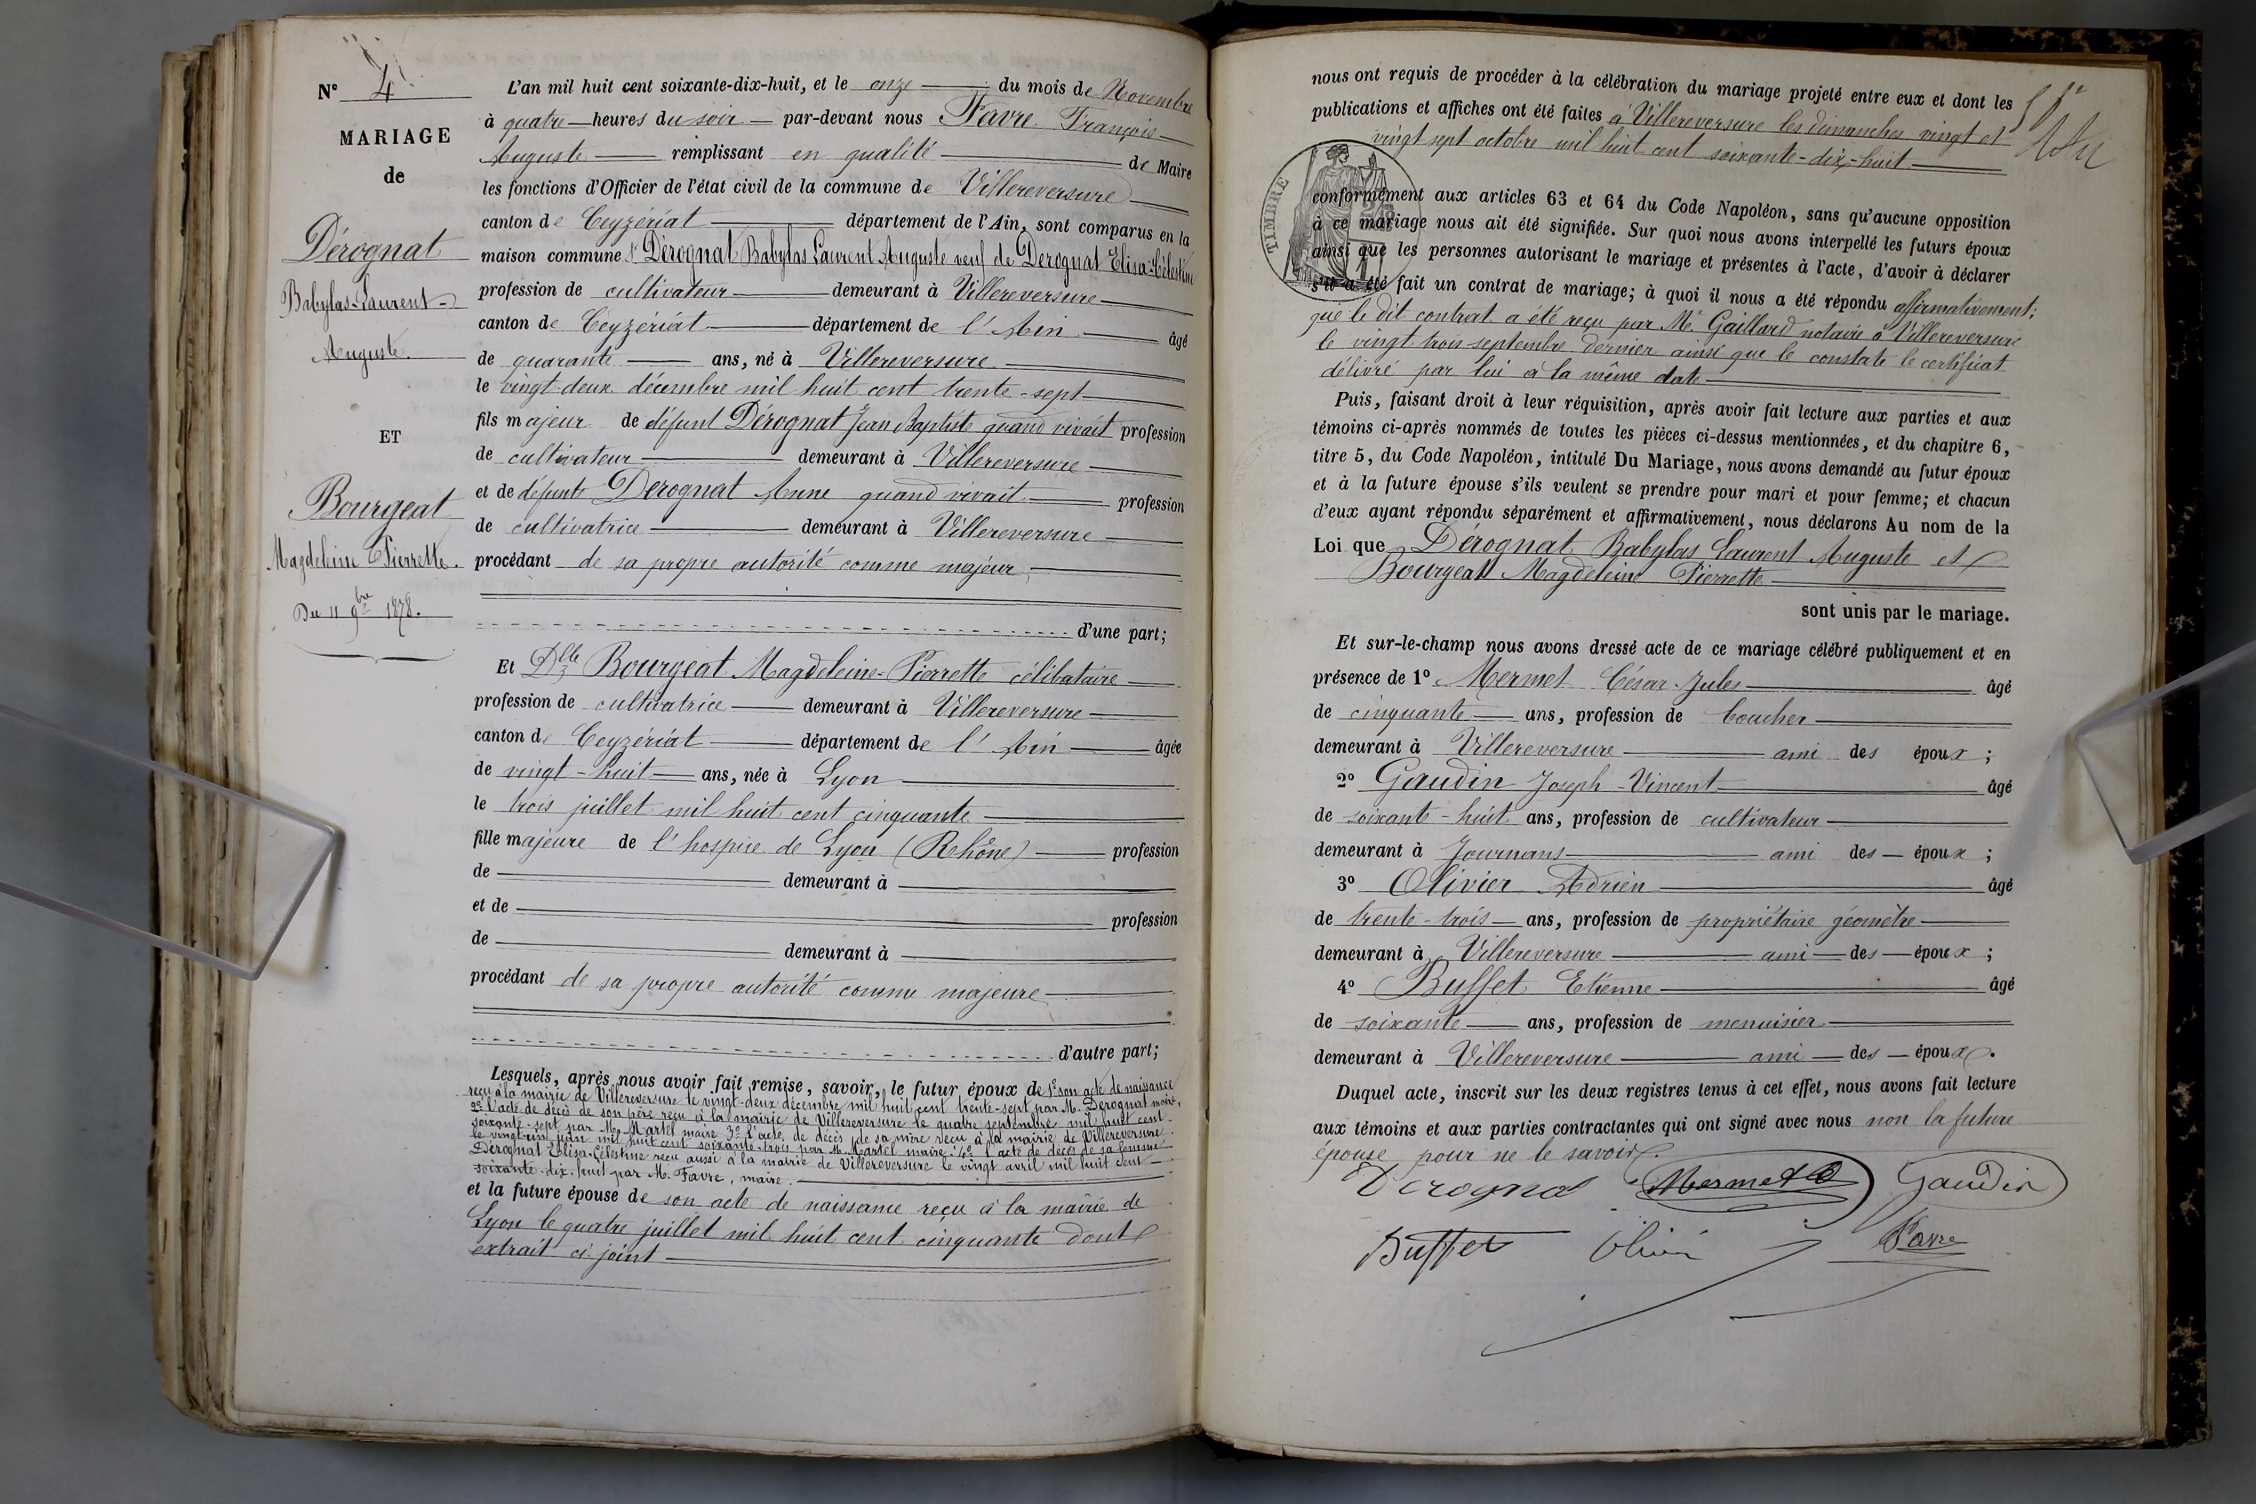 N° 4
MARIAGE
de
Dérognat
Babylas-Laurent-
Auguste.
ET
Bourgeat
Magdeleine Pierrette.
Du 11 9bre 1878.
L'an mil huit cent soixante-dix-huit, et le onze du mois de Novembre
à quatre heures du soir par-devant nous Favre François
Auguste remplissant en qualité de Maire
les fonctions d'Officier de l'état civil de la commune de Villereversure
canton de Ceyzériat département de l'Ain, sont comparus en la
maison commune Sr Dérognat Babylas Laurent Auguste veuf de Derognat Elisa-Célestine
profession de cultivateur demeurant à Villereversure
canton de Ceyzériat département de l'Ain âgé
de quarante ans, né à Villereversure
le vingt-deux décembre mil huit cent trente-sept
fils majeur de défunt Dérognat Jean Baptiste quand vivait profession
de cultivateur demeurant à Villereversure
et de défunte Derognat Anne quand vivait profession
de cultivatrice demeurant à Villereversure
procédant de sa propre autorité comme majeur
d'une part;
Et Dlle Bourgeat Magdeleine-Pierrette célibataire
profession de cultivatrice demeurant à Villereversure
canton de Ceyzériat département de l'Ain âgée
de vingt-huit ans, née à Lyon
le trois juillet mil huit cent cinquante
fille majeure de l'hospice de Lyon (Rhône) profession
de demeurant à
et de profession
de demeurant à
procédant de sa propre autorité comme majeure
d'autre part;
Lesquels, après nous avoir fait remise, savoir, le futur époux de 1° son acte de naissance
reçu à la mairie de Villereversure le vingt-deux décembre mil huit cent trente-sept par M. Derognat maire,
2° l'acte de décès de son père reçu à la mairie de Villereversure le quatre septembre mil huit cent
soixante-sept par M. Martel maire 3° l'acte de décès de sa mère reçu à la mairie de Villereversure
le vingt-un juin mil huit cent soixante-trois par M. Martel maire. 4° l'acte de décès de sa femme
Dérognat Elisa-Célestine reçu aussi à la mairie de Villereversure le vingt avril mil huit cent
soixante-dix-huit par M. Favre, maire.
et la future épouse de son acte de naissance reçu à la mairie de
Lyon le quatre juillet mil huit cent cinquante dont
extrait ci-joint
nous ont requis de procéder à la célébration du mariage projeté entre eux et dont les
publications et affiches ont été faites à Villereversure les dimanches vingt et
vingt sept octobre mil huit cent soixante-dix-huit
TIMBRE
conformément aux articles 63 et 64 du Code Napoléon, sans qu'aucune opposition
à ce mariage nous ait été signifiée. Sur quoi nous avons interpellé les futurs époux
ainsi que les personnes autorisant le mariage et présentes à l'acte, d'avoir à déclarer
s'il a été fait un contrat de mariage; à quoi il nous a été répondu affirmativement;
que le dit contrat a été reçu par Me Gaillard notaire à Villereversure
le vingt trois septembre dernier ainsi que le constate le certificat
délivré par lui à la même date
Puis, faisant droit à leur réquisition, après avoir fait lecture aux parties et aux
témoins ci-après nommés de toutes les pièces ci-dessus mentionnées, et du chapitre 6,
titre 5, du Code Napoléon, intitulé Du Mariage, nous avons demandé au futur époux
et à la future épouse s'ils veulent se prendre pour mari et pour femme; et chacun
d'eux ayant répondu séparément et affirmativement, nous déclarons Au nom de la
Loi que Dérognat Babylas Laurent Auguste et
Bourgeat Magdeleine Pierrette
sont unis par le mariage.
Et sur-le-champ nous avons dressé acte de ce mariage célébré publiquement et en
présence de 1° Mermet César-Jules âgé
de cinquante ans, profession de boucher
demeurant à Villereversure ami des époux;
2° Gaudin Joseph-Vincent âgé
de soixante-huit ans, profession de cultivateur
demeurant à Journans ami des époux;
3° Olivier Adrien âgé
de trente-trois ans, profession de propriétaire géomètre
demeurant à Villereversure ami des époux;
4° Buffet Etienne âgé
de soixante ans, profession de menuisier
demeurant à Villereversure ami des époux.
Duquel acte, inscrit sur les deux registres tenus à cet effet, nous avons fait lecture
aux témoins et aux parties contractantes qui ont signé avec nous non la future
épouse pour ne le savoir.
Derognat Mermet Gaudin
Buffet Olivier Favre